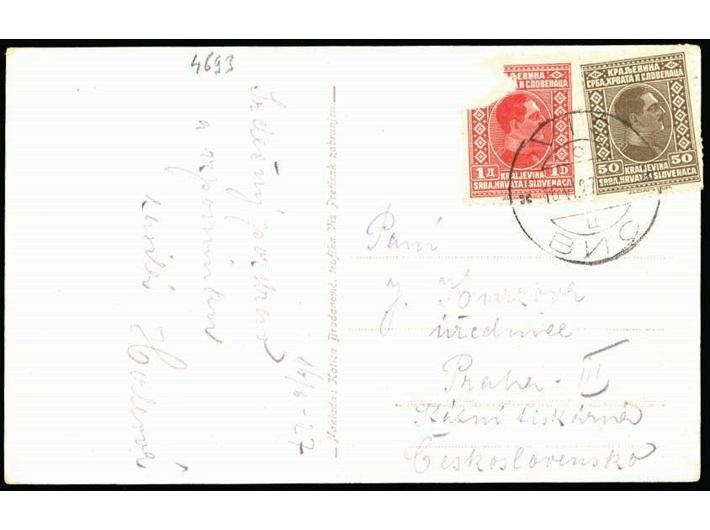 4693
Srdečný pozdrav
a vzpomínku
zasílá
16/6-27
Naklada: Katica Bradanović, trafika Vis Pretisak zabranjen
КРАЉЕВИНА
И СЛОВЕНАЦА
1 Д 1 D
KRALJEVINA
SRBA, HRVATA I SLOVENACA
КРАЉЕВИНА
СРБА, ХРВАТА И СЛОВЕНАЦА
50 50
KRALJEVINA
SRBA, HRVATA I SLOVENACA
ВИС
Paní
J.
úřednice
Praha - III
Státní tiskárna
Československo